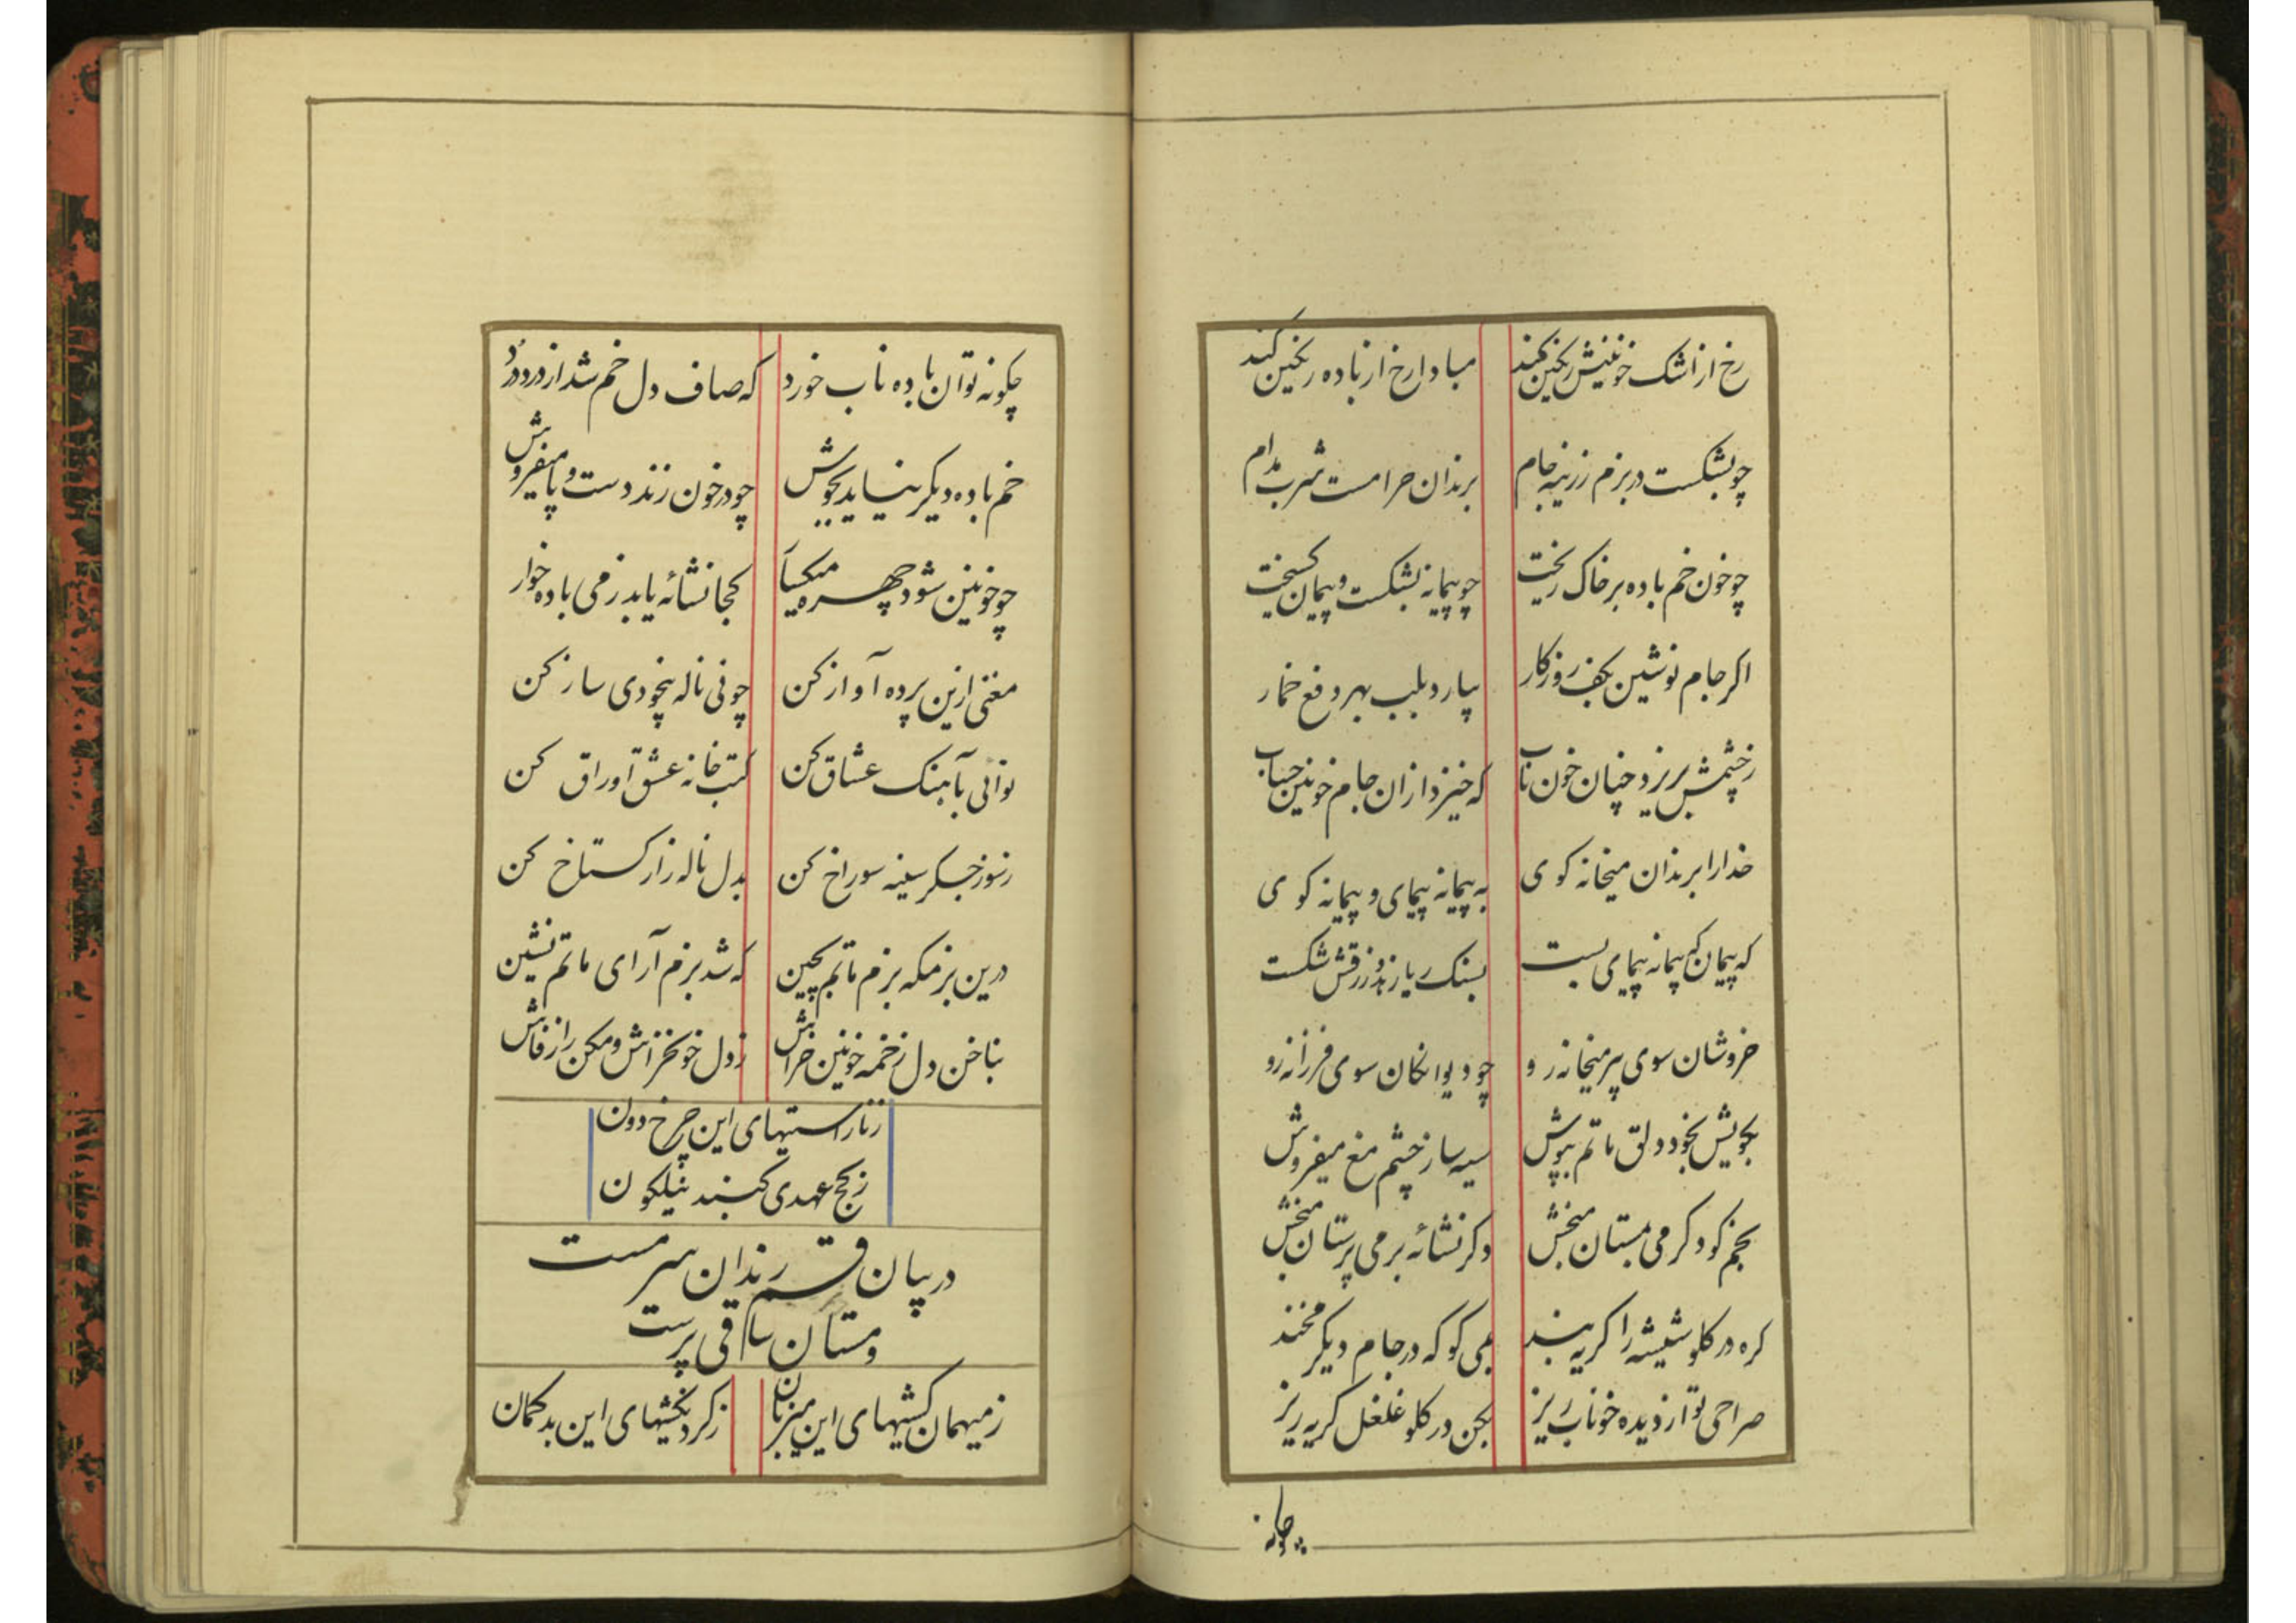 رخ از اشک خونینش رنگین کنید مبادا رخ از باده رنگین کنید
چو بشکست در بزم زرینه جام برندان حرامست شرب مدام
چو خون خم باده بر خاک ریخت چو پیمانه بشکست و پیمان گسیخت
اکر جام نوشین بکف روزکار بیارد بلب بهر دفع خمار
زچشمش بریزد چنان خون ناب که خیزد ازان جام خونین حباب
خدا را برندان میخانه کوی به پیمانه پیمای و پیمانه کوی
که پیمان که پیمانه پیمای بست بسنک ریا زهد و زرقش شکست
خروشان سوی پیر میخانه رو چو دیوانکان سوی فرزانه رو
بجویش بخود دلق ماتم بپوش سیه ساز چشم مغ میفروش
بخم کو دکر می بمستان مبخش دکر نشائه بر می پرستان مبخش
کره در کلو شیشه را کریه بند بمی کو که در جام دیکر مخند
صراحی تو از دیده خوناب ریز بکن در کلو غلغل کریه ریز
چکونه
چکونه توان باده ناب خورد که صاف دل خم شد از درد درد
خم باده دیکر نیاید بجوش چو در خون زند دست و پا میفروش
چو خونین شود چهره میکسار کجا نشائه یابد ز می باده خوار
مغنی ازین پرده آواز کن چو نی ناله بیخودی ساز کن
نوائی بآهنک عشاق کن کتب خانه عشق اوراق کن
ز سوز جکر سینه سوراخ کن بدل ناله زار کستاخ کن
درین بزمکه بزم ماتم بچین که شد بزم آرای ماتم نشین
بناخن دل زخمه خونین خراش ز دل خون خراش و مکن راز فاش
ز ناراستیهای این چرخ دون
ز کج عهدی کنبد نیلکون
در بیان قسم رندان سرمست
و مستان ساقی پرست
ز میهمان کشیهای این میزبان ز کردنکشیهای این بدکمان